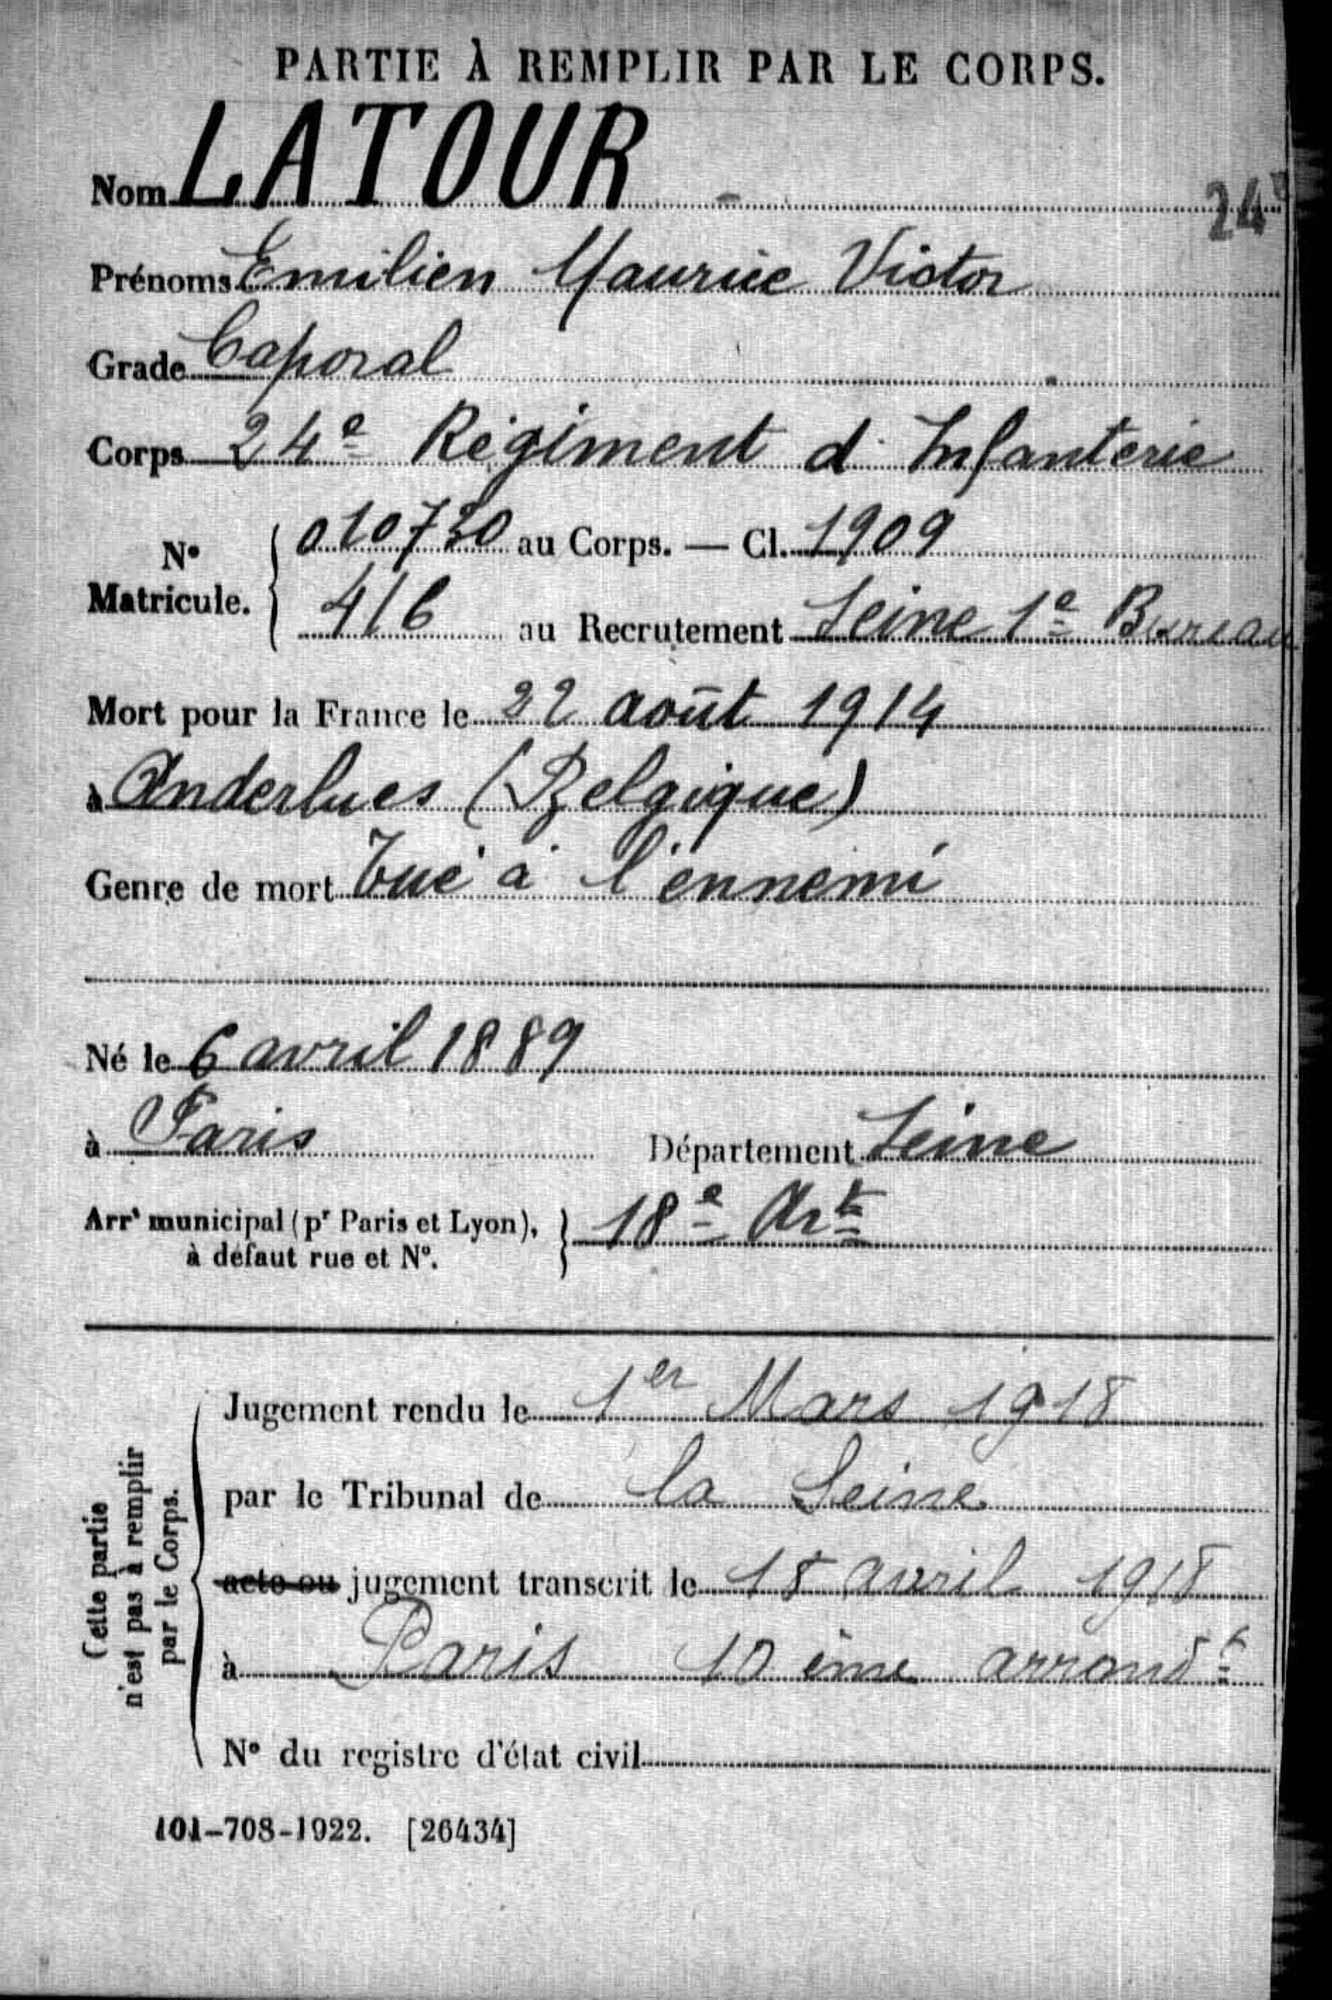 PARTIE À REMPLIR PAR LE CORPS.
Nom LATOUR
24
Prénoms Emilien Maurice Victor
Grade Caporal
Corps 24e Régiment d'Infanterie
N° Matricule. 010730 au Corps. — Cl. 1909
416 au Recrutement Seine 1e Bureau
Mort pour la France le 22 août 1914
à Anderlues (Belgique)
Genre de mort Tué à l'ennemi
Né le 6 avril 1889
à Paris Département Seine
Arrt municipal (pr Paris et Lyon), à défaut rue et N°. 18e Art
Cette partie n'est pas à remplir par le Corps.
Jugement rendu le 1er Mars 1918
par le Tribunal de la Seine
acte ou jugement transcrit le 18 avril 1918
à Paris ème arrondt
N° du registre d'état civil
101-708-1922. [26434]